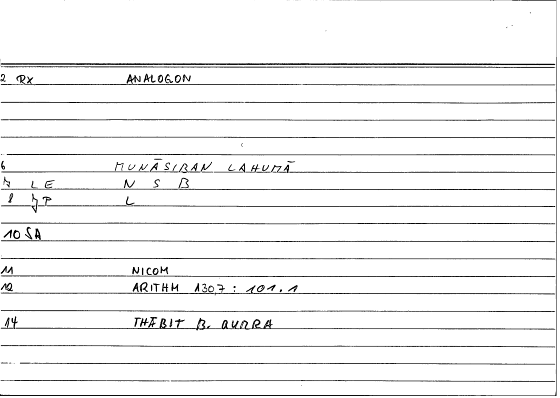 2 RX ANALOGON
6 MUNĀSIBAN LAHUMĀ
7 LE N S B
8 JP L
10 SA
11 NICOM
12 ARITHM 130,7 : 101.1
14 THĀBIT B. QURRA